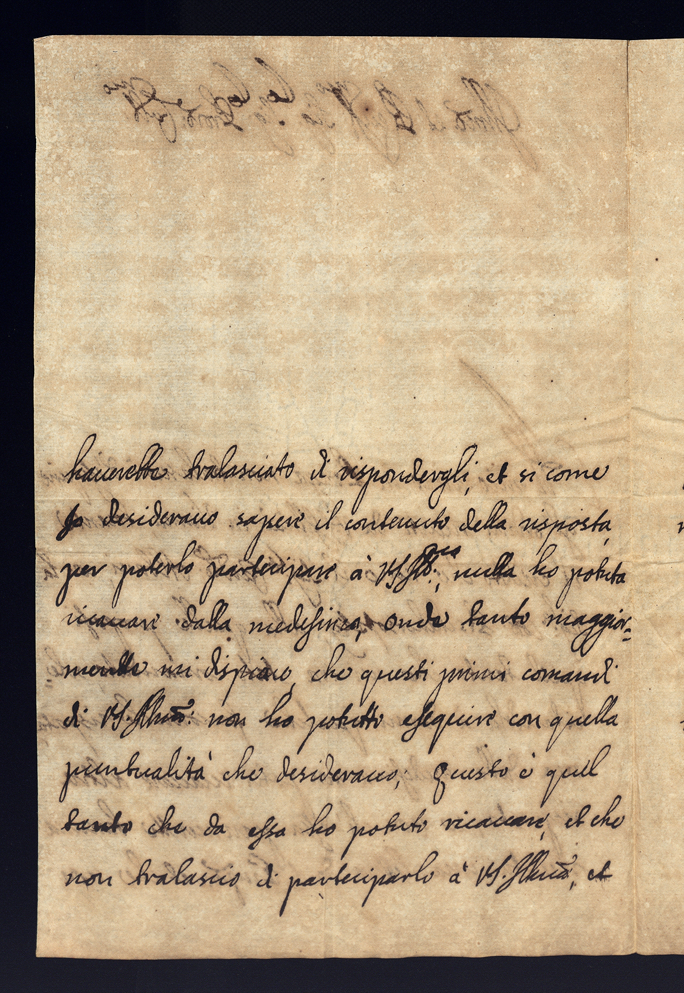 hauerebbe tralasciato di rispondergli, et si come
Io desiderauo sapere il contenuto della risposta
per poterlo participare à V.S. Ill.ma, nulla ho potuta
ricauare dalla medesima, onde tanto maggior=
mente mi dispiace, che questi primi comandi
di V.S. Illma: non ho potutto esseguire con quella
puntualità che desiderauo; questo è quel
tanto che da essa ho potuto ricauare, et che
non tralascio di participarlo à V.S. Illma, et